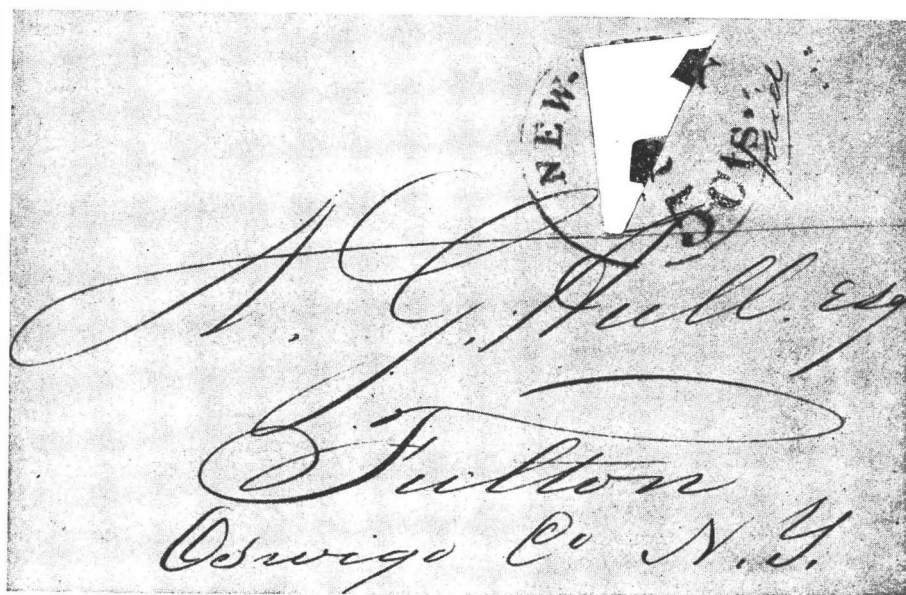 NEW.
5 Cts.
Paid
A. G. Hull. Esq
Fulton
Oswigo Co N.Y.